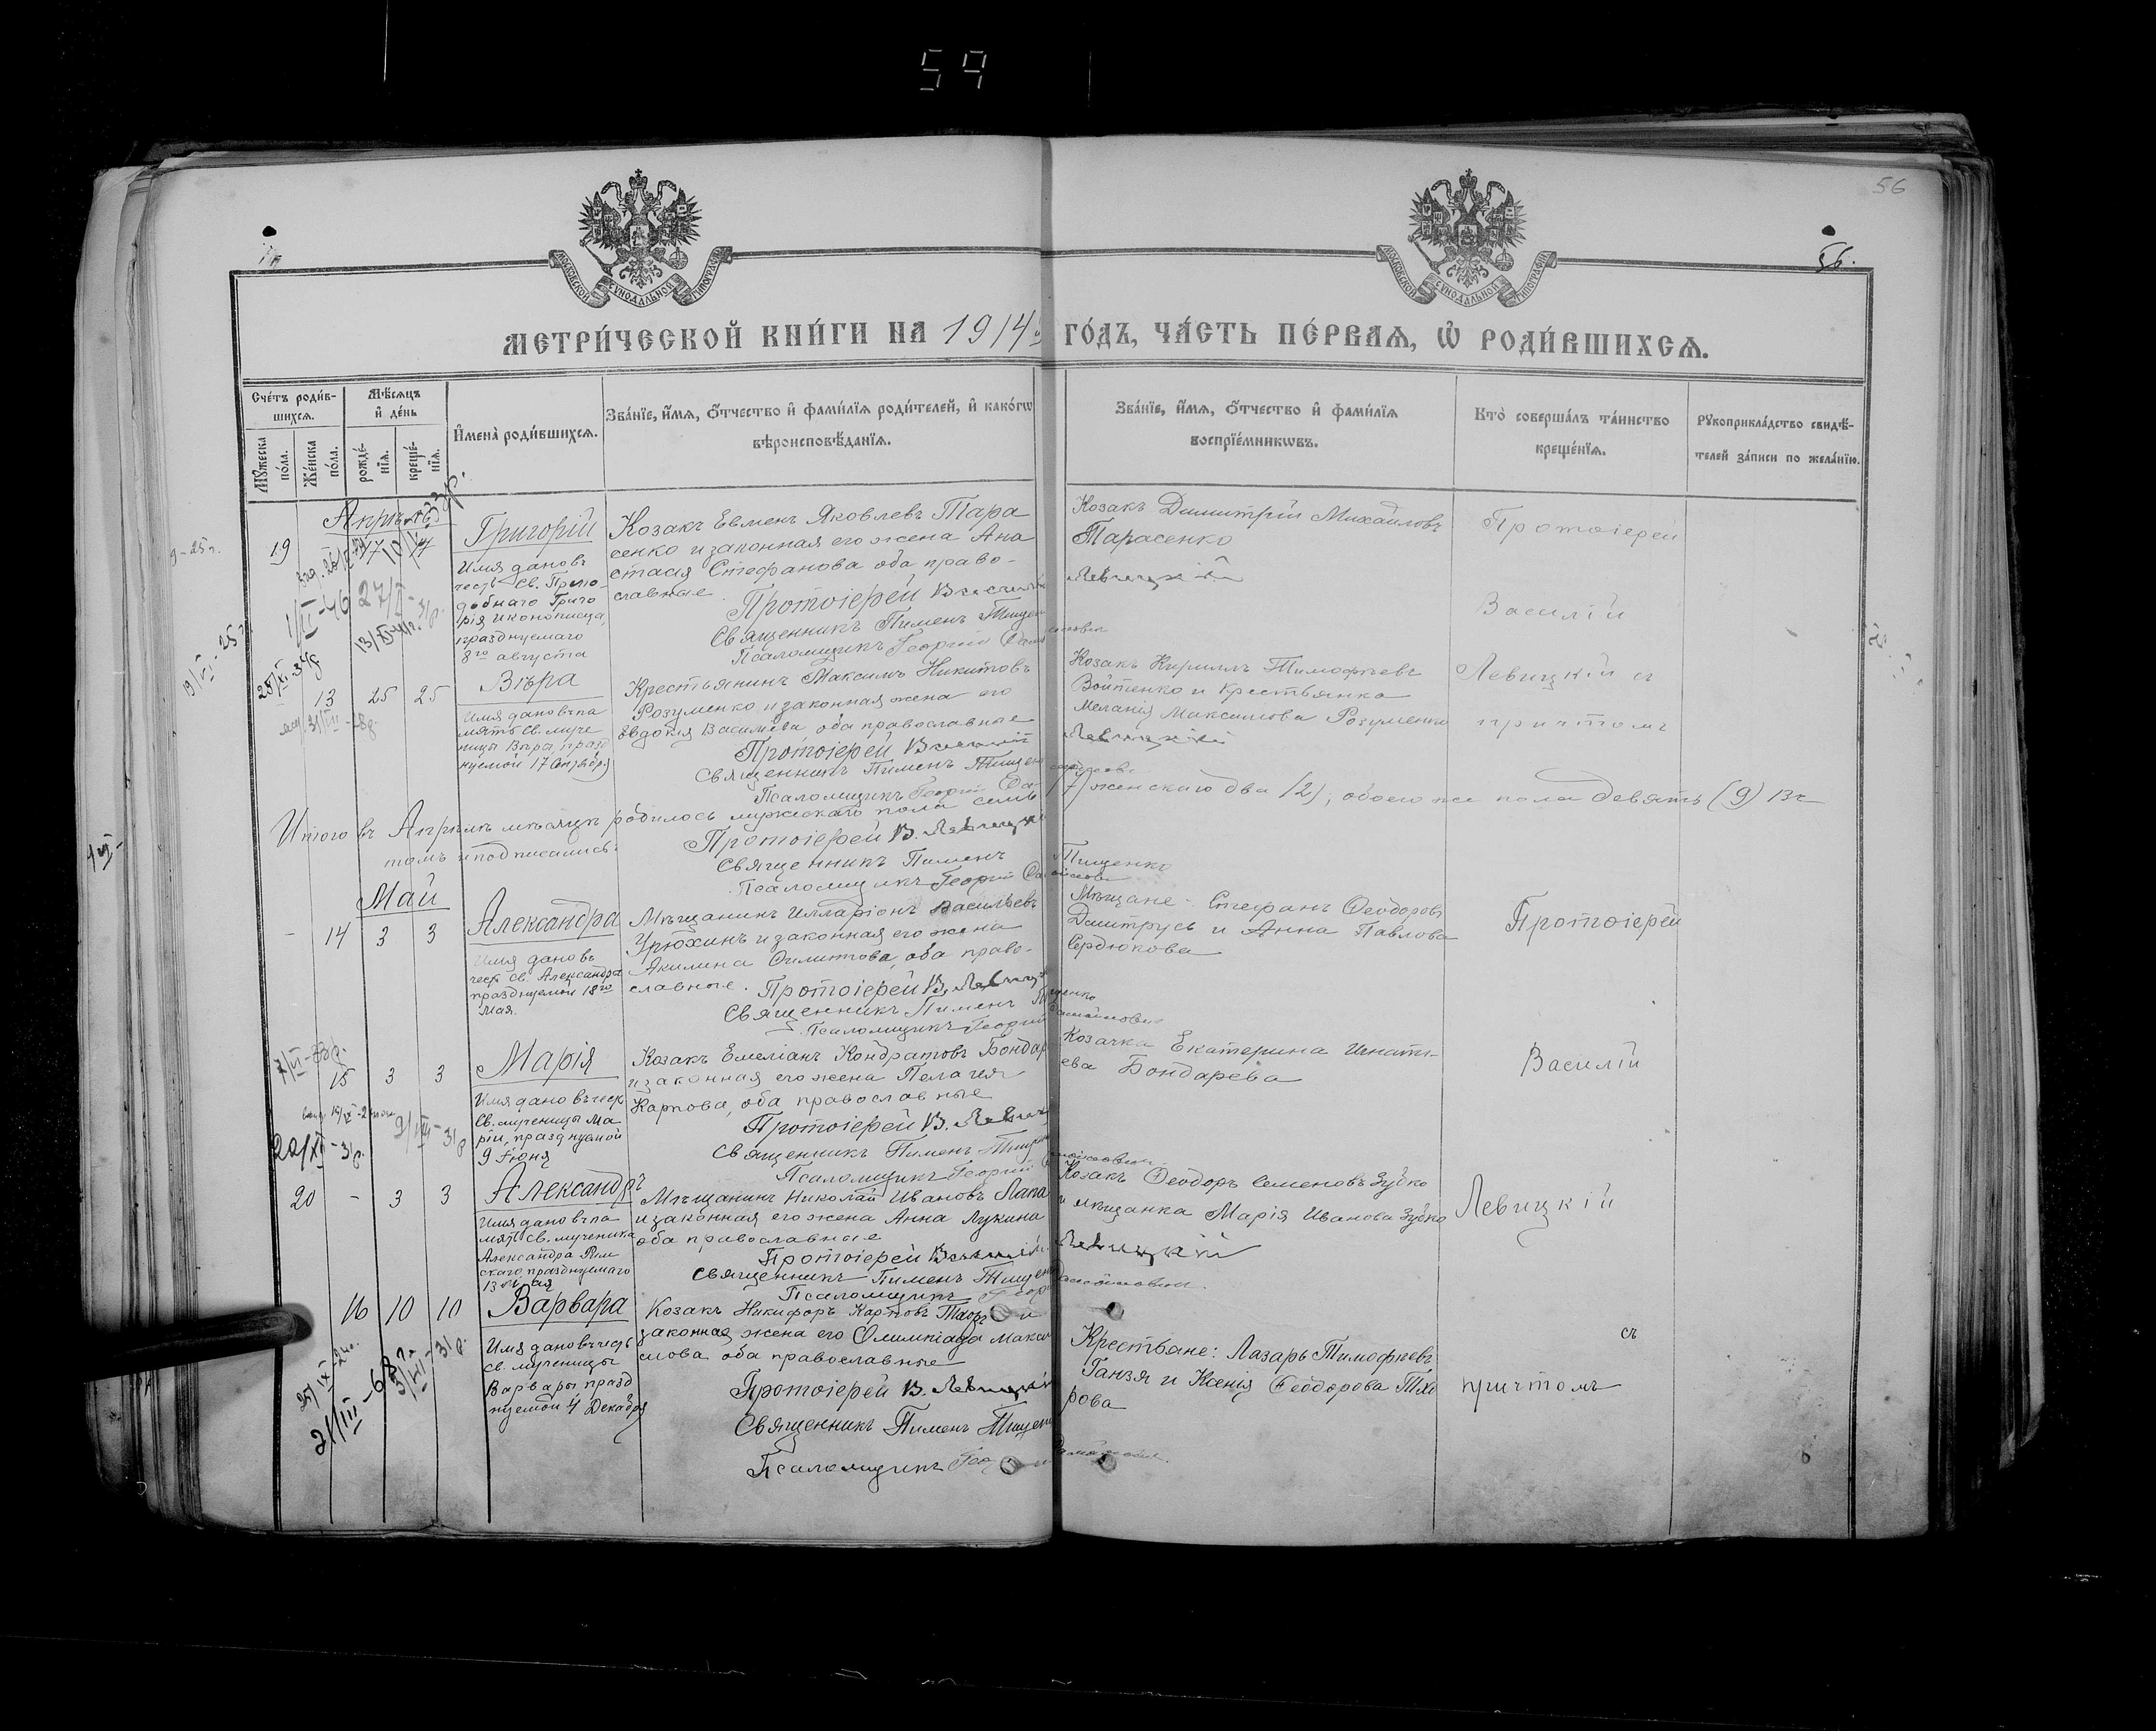 59
56
56.
МОСКОВСКОЙ СѴНОДАЛЬНОЙ ТИПОГРАФІИ
МОСКОВСКОЙ СѴНОДАЛЬНОЙ ТИПОГРАФІИ
МЕТРИ́ЧЕСКОЙ КНИ́ГИ НА 1914й ГО́ДЪ, ЧА́СТЬ ПЕ́РВАѦ, Ѡ҆ РОДИ́ВШИХСѦ.
Сче́тъ роди́в-
шихсѧ.
Мꙋ́жеска по́ла.
Же́нска по́ла.
Мѣ́сѧцъ
и҆ де́нь
рожде́-
нїѧ.
креще́-
нїѧ.
И҆мена̀ роди́вшихсѧ.
Зва́нїе, и҆́мѧ, ѻ҆́тчество и҆ фами́лїѧ роди́телей, и҆ како́гѡ
вѣроисповѣ́данїѧ.
Зва́нїе, и҆́мѧ, ѻ҆́тчество и҆ фами́лїѧ
воспрїе́мникѡвъ.
Кто̀ соверша́лъ та́инство
креще́нїѧ.
Рꙋкоприкла́дство свидѣ́-
телей за́писи по жела́нїю.
Апрѣль
19
17
Григорій
Имя дано въ
честь Св. Препо-
добнаго Григо
рія иконописца,
празднуемаго
8го августа
Козакъ Евменъ Яковлевъ Тара
сенко и законная его жена Ана
стасія Стефанова оба право-
славные.
Протоіерей Василій Левицкій
Священникъ Пименъ Тищенко
Псаломщикъ Георгій
Козакъ Димитрій Михайловъ
Тарасенко
Протоіерей
Василій
Левицкій съ
причтомъ
13 25 25
Вѣра
Имя дано въ па
мять Св. муче
ницы Вѣра, празд
нуемой 17 Сентября
Крестьянинъ Максимъ Никитовъ
Розуменко и законная жена его
Евдокія Васильева, оба православные
Протоіерей Василій Левицкій
Священникъ Пименъ Тищенко
Псаломщикъ Георгій
Козакъ Кириллъ Тимофѣевъ
Войтенко и крестьянка
Меланія Максимова Розуменко
Итого въ Апрѣлѣ мѣсяцѣ родилось мужескаго пола семь (7) женскаго два (2), обоего же пола девять (9) Въ
томъ и подписались:
Протоіерей В. Левицкій
Священникъ Пименъ Тищенко
Псаломщикъ Георгій
Май
- 14 3 3
Александра
Имя дано въ
честь св. Александры
празднуемой 18го
Мая.
Мѣщанинъ Илларіонъ Васильевъ
Урюхинъ и законная его жена
Акилина Филитова, оба право-
славные.
Протоіерей В. Левицкій
Священникъ Пименъ Тищенко
Псаломщикъ Георгій
Мѣщане: Стефанъ Ѳеодоровъ
Димитрусь и Анна Павлова
Сердюкова
Протоіерей
15 3 3
Марія
Имя дано въ честь
Св. мученицы Ма
ріи, празднуемой
9 Іюня
Козакъ Емеліанъ Кондратовъ Бондарь
и законная его жена Пелагея
Карпова, оба православные
Протоіерей В. Левицкій
Священникъ Пименъ Тищенко
Псаломщикъ Георгій
Козачка Екатерина Игнать-
ева Бондарева
Василій
20 - 3 3
Александръ
Имя дано въ па
мять св. мученика
Александра Рим
скаго, празднуемаго
13 Мая
Мѣщанинъ Николай Ивановъ Лапа
и законная его жена Анна Лукина
оба православные
Протоіерей Василій Левицкій
Священникъ Пименъ Тищенко
Псаломщикъ Георгій
Козакъ Ѳеодоръ Семеновъ Зубко
и мѣщанка Марія Иванова Зубко
Левицкій
16 10 10
Варвара
Имя дано въ честь
св. мученицы
Варвары празд
нуемой 4 Декабря
Козакъ Никифоръ Карповъ и
законная жена его Олимпіада Макси
мова оба православные
Протоіерей В. Левицкій
Священникъ Пименъ Тищенко
Псаломщикъ
Крестьяне: Лазарь Тимофѣевъ
Ганзя и Ксенія Ѳеодорова
рова
съ
причтомъ